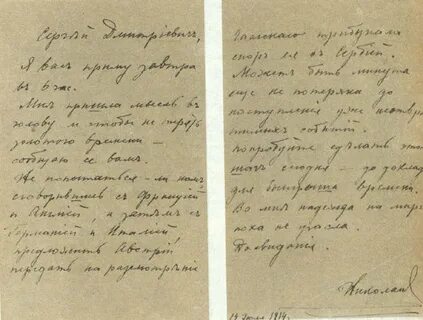 Сергѣй Дмитріевичъ,
Я Васъ приму завтра
въ 6 час.
Мнѣ пришла мысль въ
голову и чтобы не терять
золотого времени –
сообщаю ее Вамъ.
Не попытаться-ли намъ
сговорившись съ Франціей
и Англіей, а затѣмъ съ
Германіей и Италіей
предложить Австріи
передать на разсмотрѣніе
Гаагскаго трибунала
споръ ея съ Сербіей.
Можетъ быть минута
еще не потеряна до
наступленія уже неотвра-
тимыхъ событій.
Попробуйте сдѣлать этотъ
шагъ сегодня – до доклада
для выигрыша времени.
Во мнѣ надежда на миръ
пока не угасла.
До свиданія.
Николай
Іюля 1914.